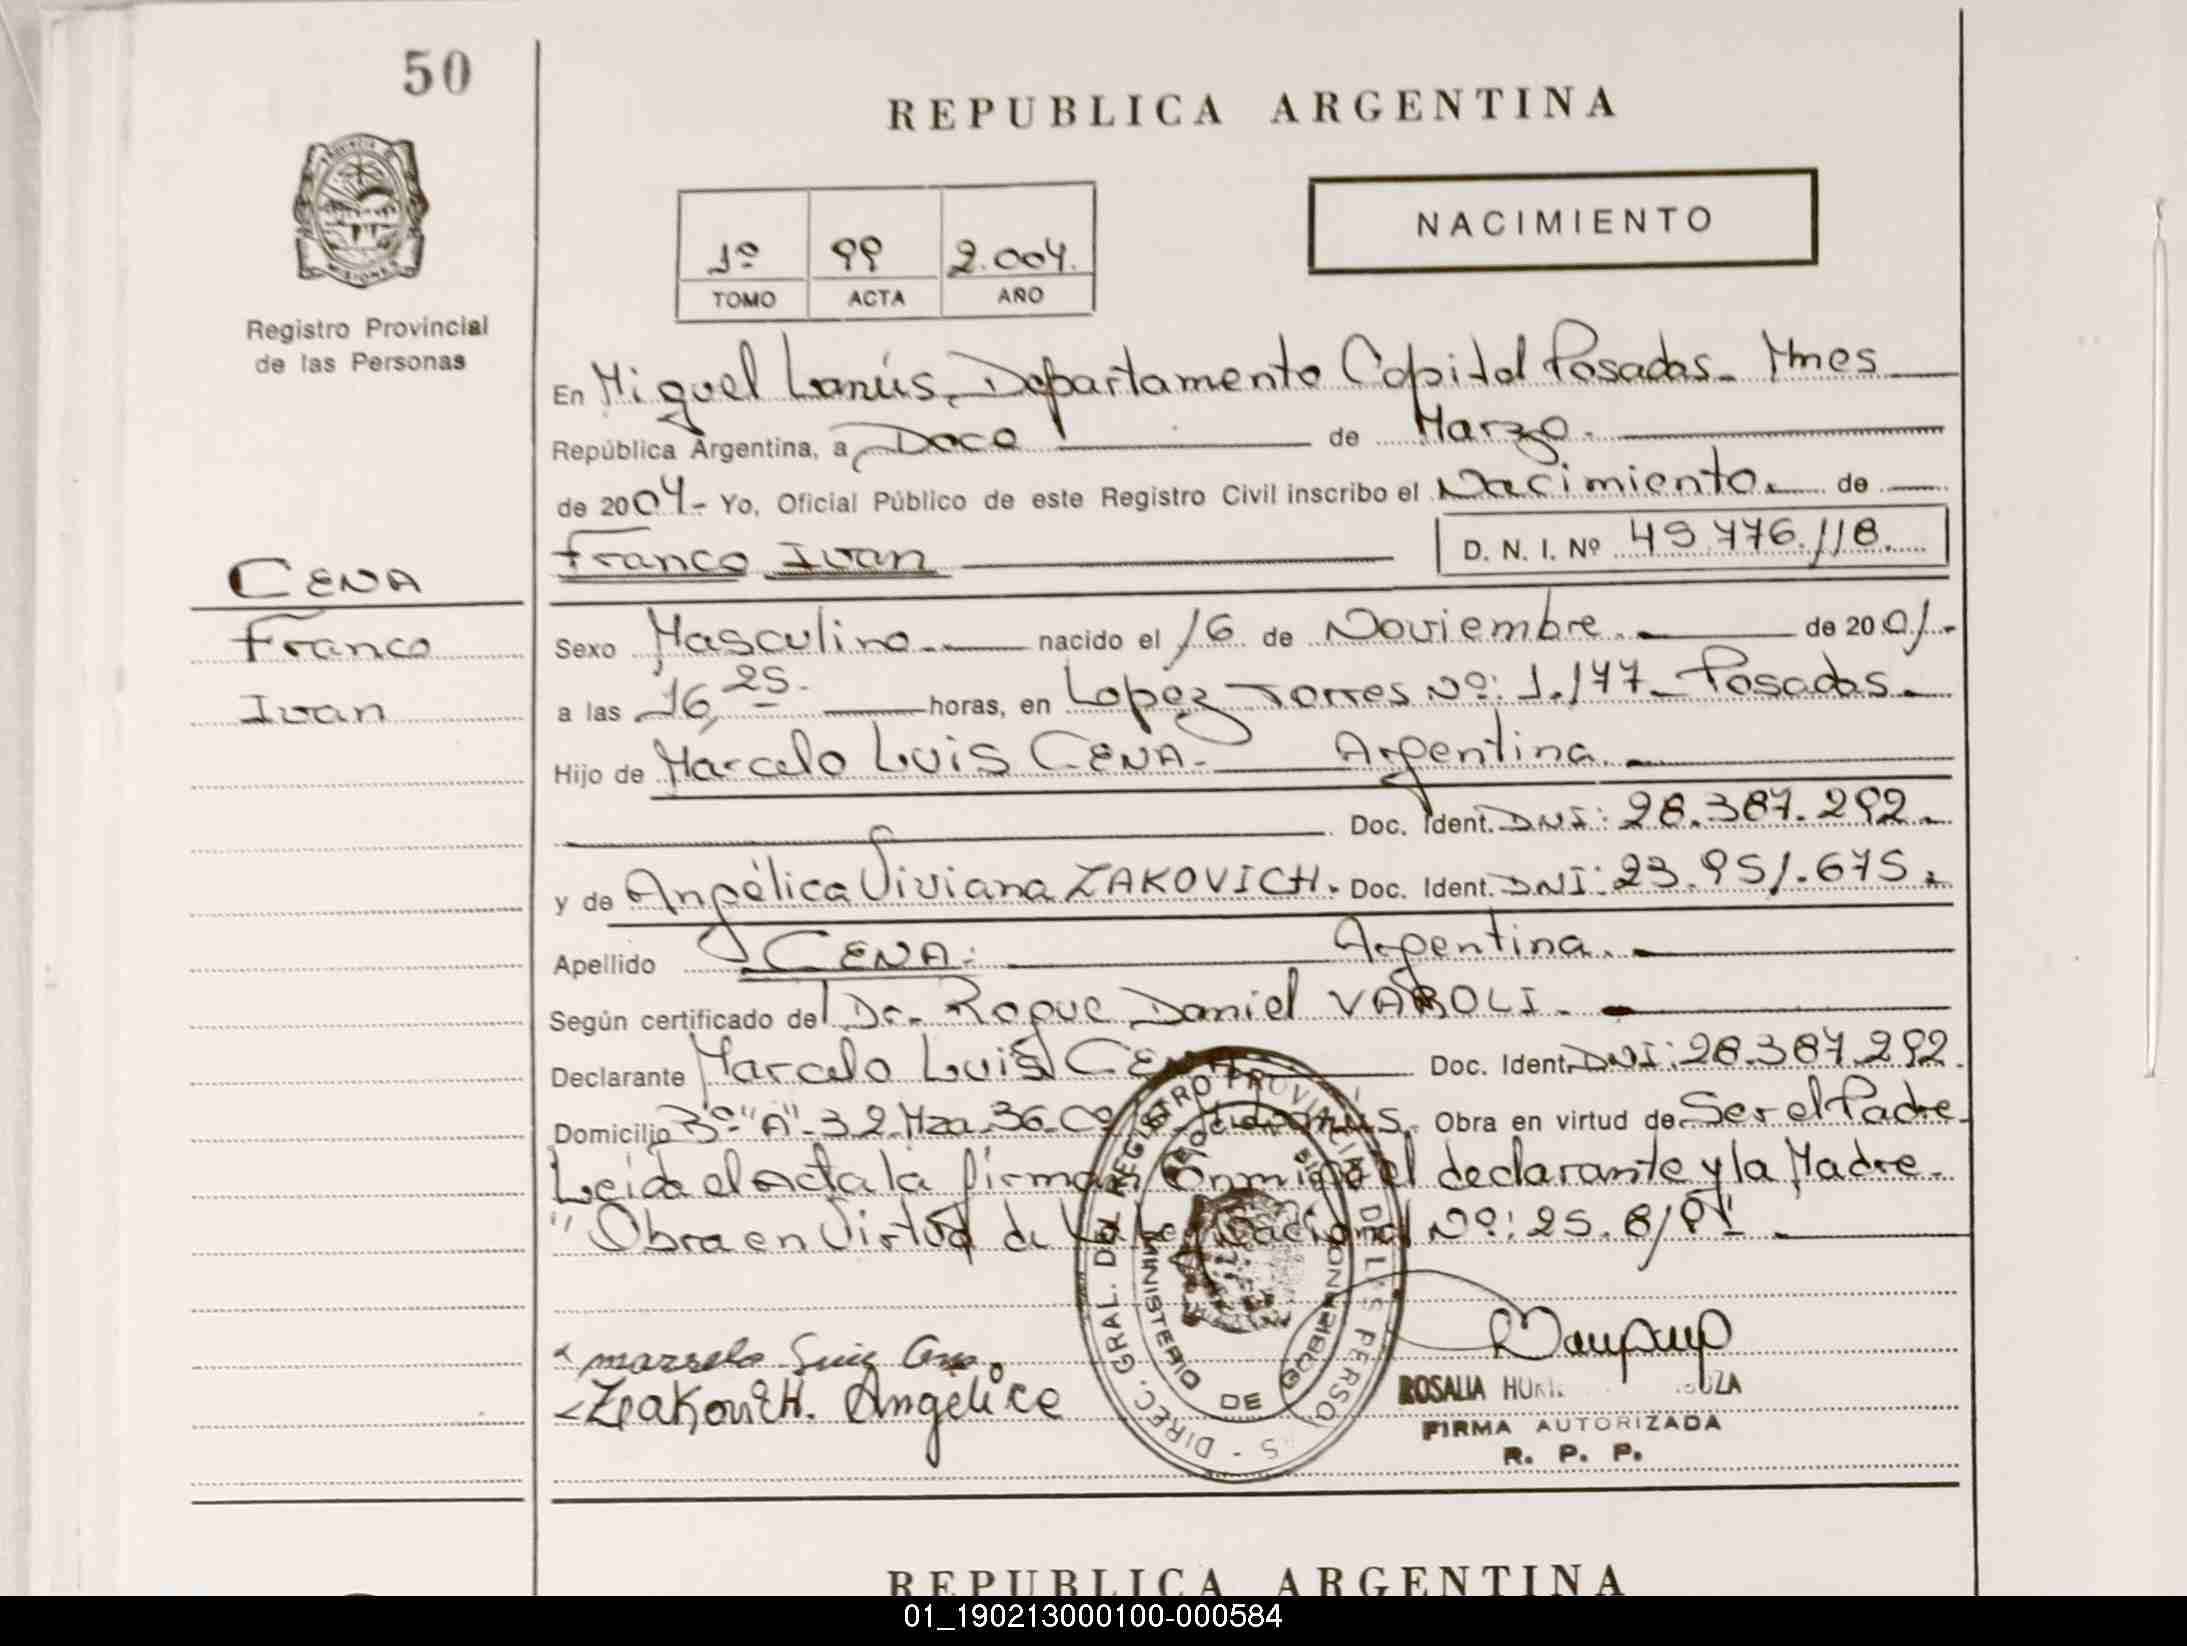 50
REPUBLICA ARGENTINA
PROVINCIA DE
MISIONES
Registro Provincial
de las Personas
NACIMIENTO
1º 99 2.004.
TOMO ACTA AÑO
En Miguel Lanús, Departamento Capital Posadas- Mnes
República Argentina, a Doce de Marzo.
de 2004- Yo, Oficial Público de este Registro Civil inscribo el Nacimiento. de
Franco Ivan D. N. I. Nº 43.776.118.
CENA
Franco
Ivan
Sexo Masculino. nacido el 16 de Noviembre. de 2001.-
a las 16,25. horas, en Lopez Torres Nº: 1.177- Posadas.
Hijo de Marcelo Luis CENA- Argentina.
Doc. Ident. DNI: 28.387.292.
y de Angélica Viviana ZAKOVICH. Doc. Ident. DNI: 23.951.675.
Apellido CENA: Argentina.
Según certificado del Dr. Roque Daniel VAROLI.
Declarante Marcelo Luis CENA Doc. Ident. DNI: 28.387.292.
Domicilio 3º "A"-32-Mza-36-Cº Lanús. Obra en virtud de Ser el Padre-
Leida el acta la firman Conmigo el declarante y la Madre-
"Obra en Virtud de la Ley Nacional Nº: 25.819"
DIREC. GRAL. DEL REGISTRO PROVINCIAL DE LAS PERSONAS
MINISTERIO DE GOBIERNO
Marcelo Luis Cena
Zakovich. Angelica
ROSALIA
FIRMA AUTORIZADA
R. P. P.
REPUBLICA ARGENTINA
01_190213000100-000584